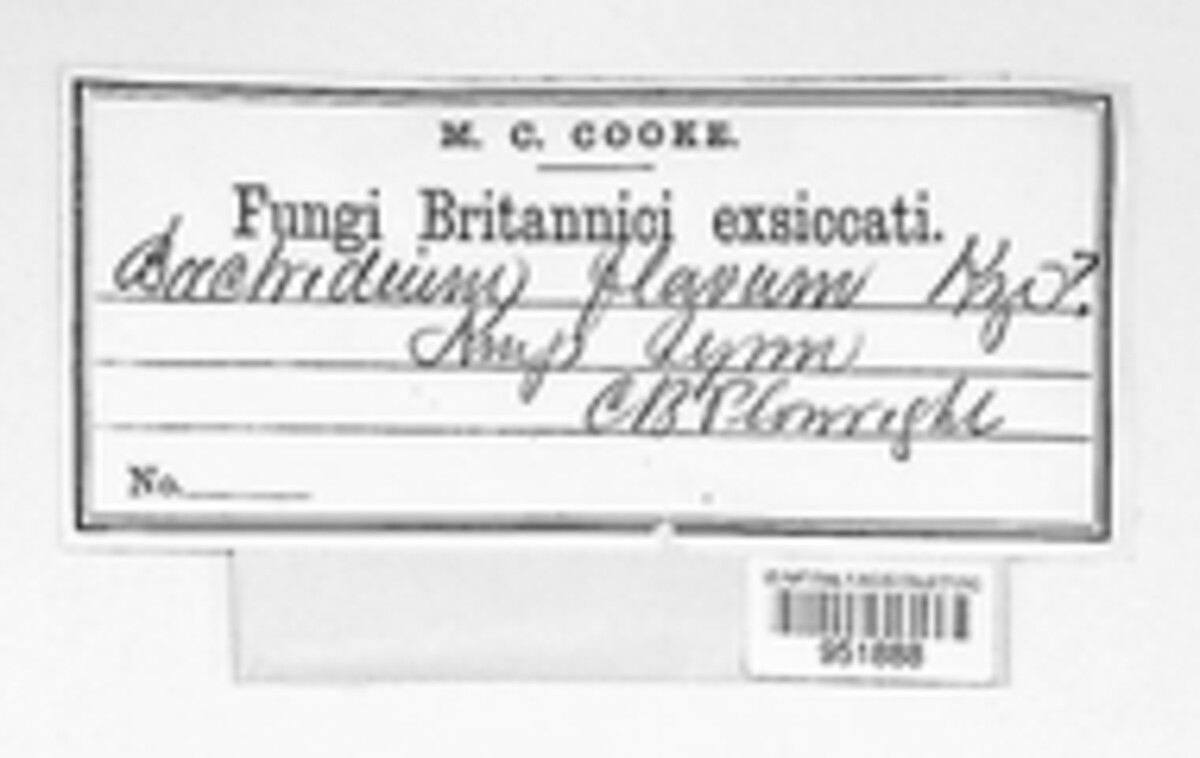 M. C. COOKE.
Fungi Britannici exsiccati.
Bactridium flavum Kze?
Kings Lynn
C B Plowright
No.
951888